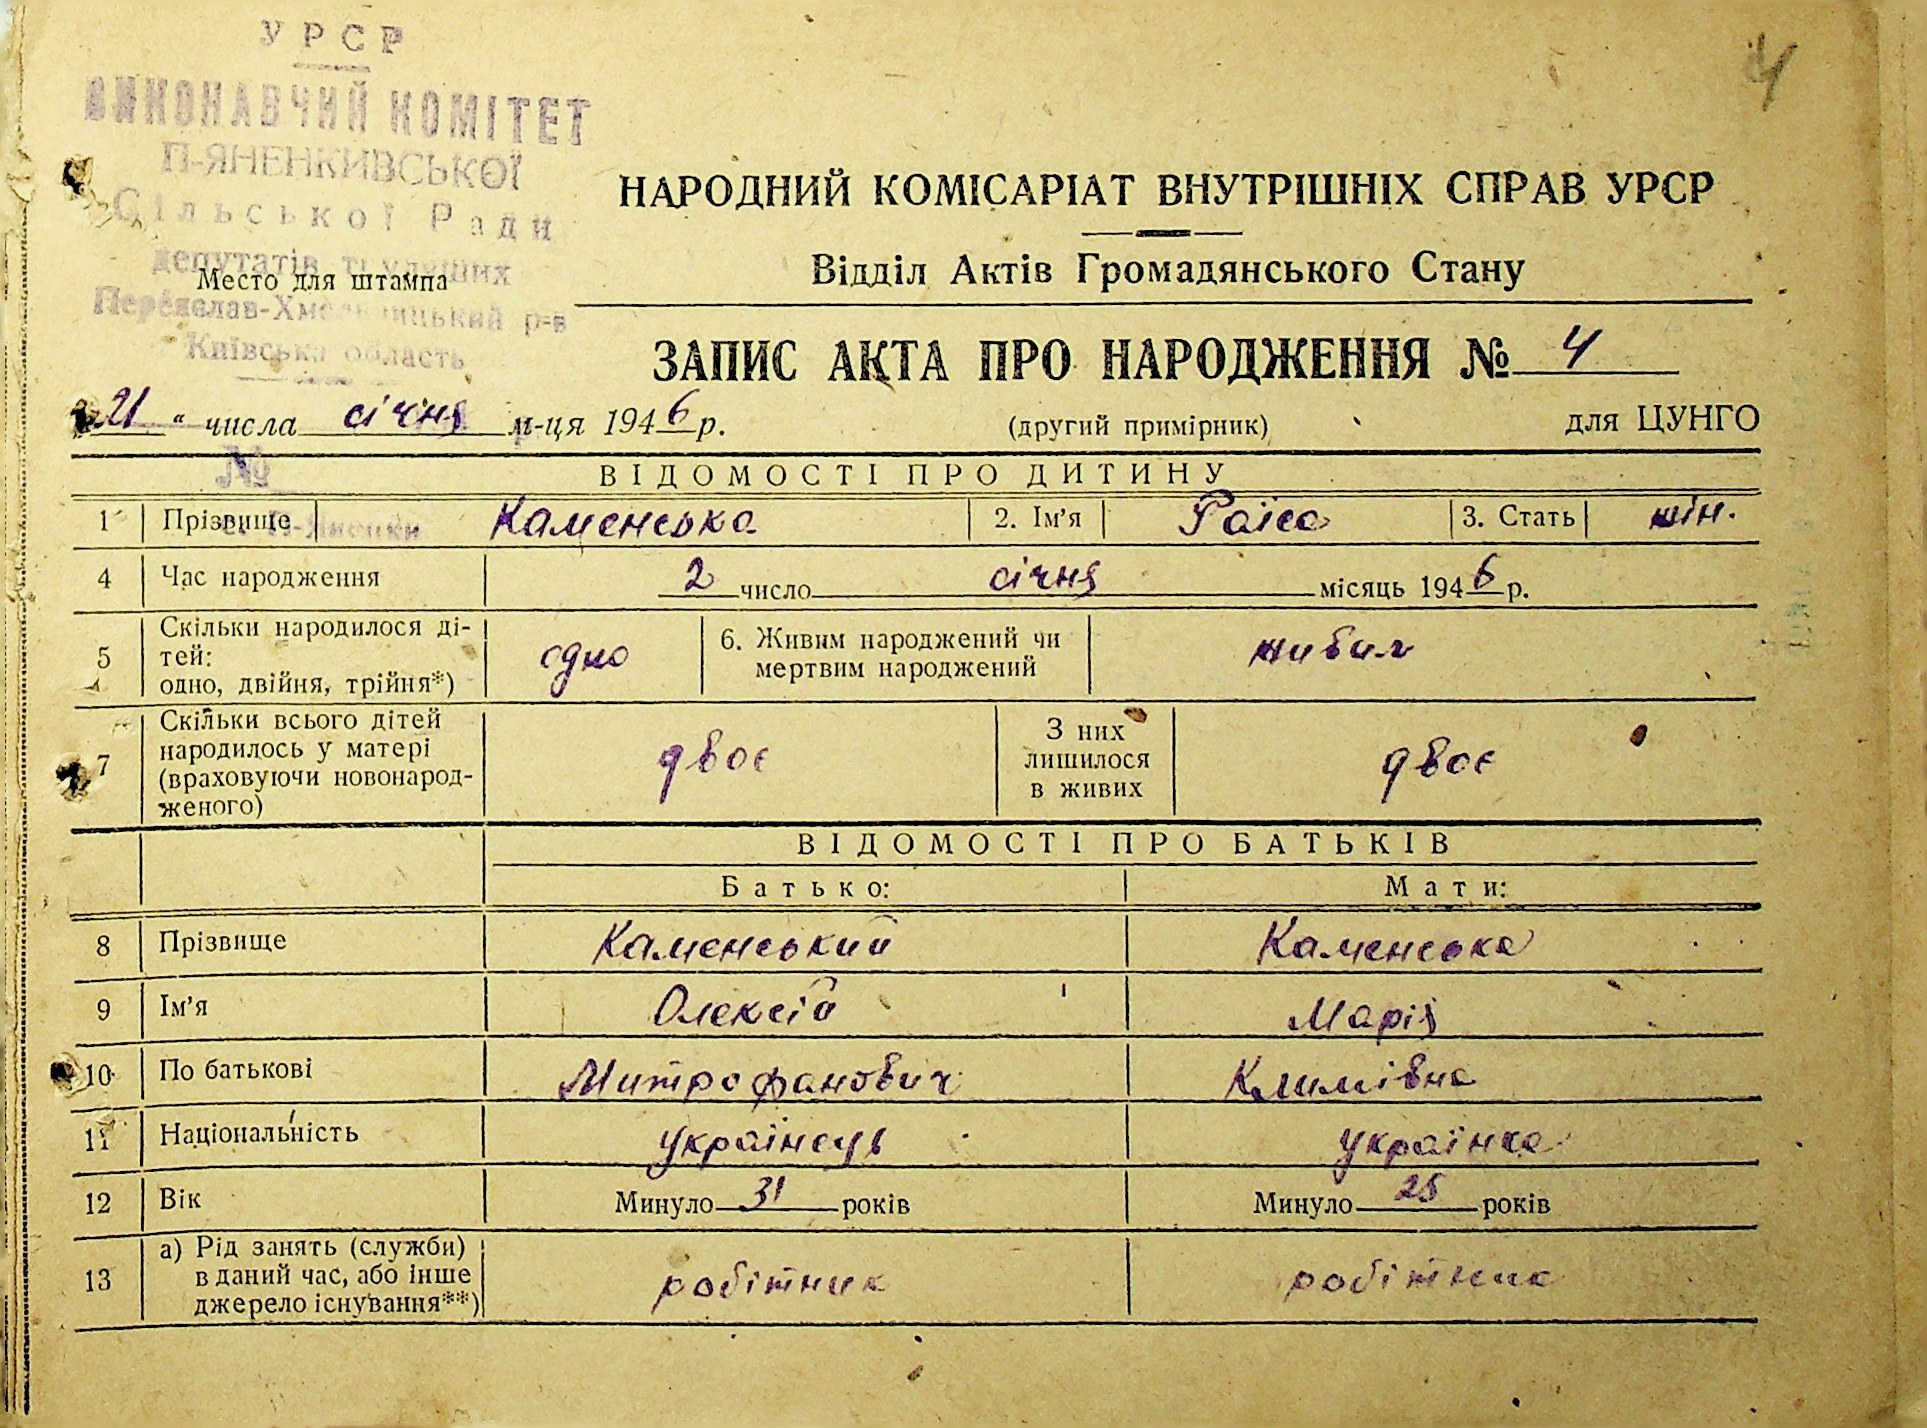 УРСР
ВИКОНАВЧИЙ КОМІТЕТ
П-ЯНЕНКИВСЬКОЇ
Сільської Ради
депутатів трудящих
Переяслав-Хмельницький р-в
Київська область
Место для штампа
№
4
НАРОДНИЙ КОМІСАРІАТ ВНУТРІШНІХ СПРАВ УРСР
Відділ Актів Громадянського Стану
ЗАПИС АКТА ПРО НАРОДЖЕННЯ № 4
21 " числа січня м-ця 1946 р. (другий примірник) для ЦУНГО
ВІДОМОСТІ ПРО ДИТИНУ
1 Прізвище Каменська 2. Ім'я Раїса 3. Стать жін.
4 Час народження 2 число січня місяць 1946 р.
5 Скільки народилося ді-
тей:
одно, двійня, трійня*) одно 6. Живим народжений чи
мертвим народжений живим
7 Скільки всього дітей
народилось у матері
(враховуючи новонарод-
женого) двоє З них
лишилося
в живих двоє
ВІДОМОСТІ ПРО БАТЬКІВ
Батько: Мати:
8 Прізвище Каменський Каменська
9 Ім'я Олексій Марія
10 По батькові Митрофанович Климівна
11 Національність українець українка
12 Вік Минуло 31 років Минуло 25 років
13 а) Рід занять (служби)
в даний час, або інше
джерело існування**) робітник робітниця